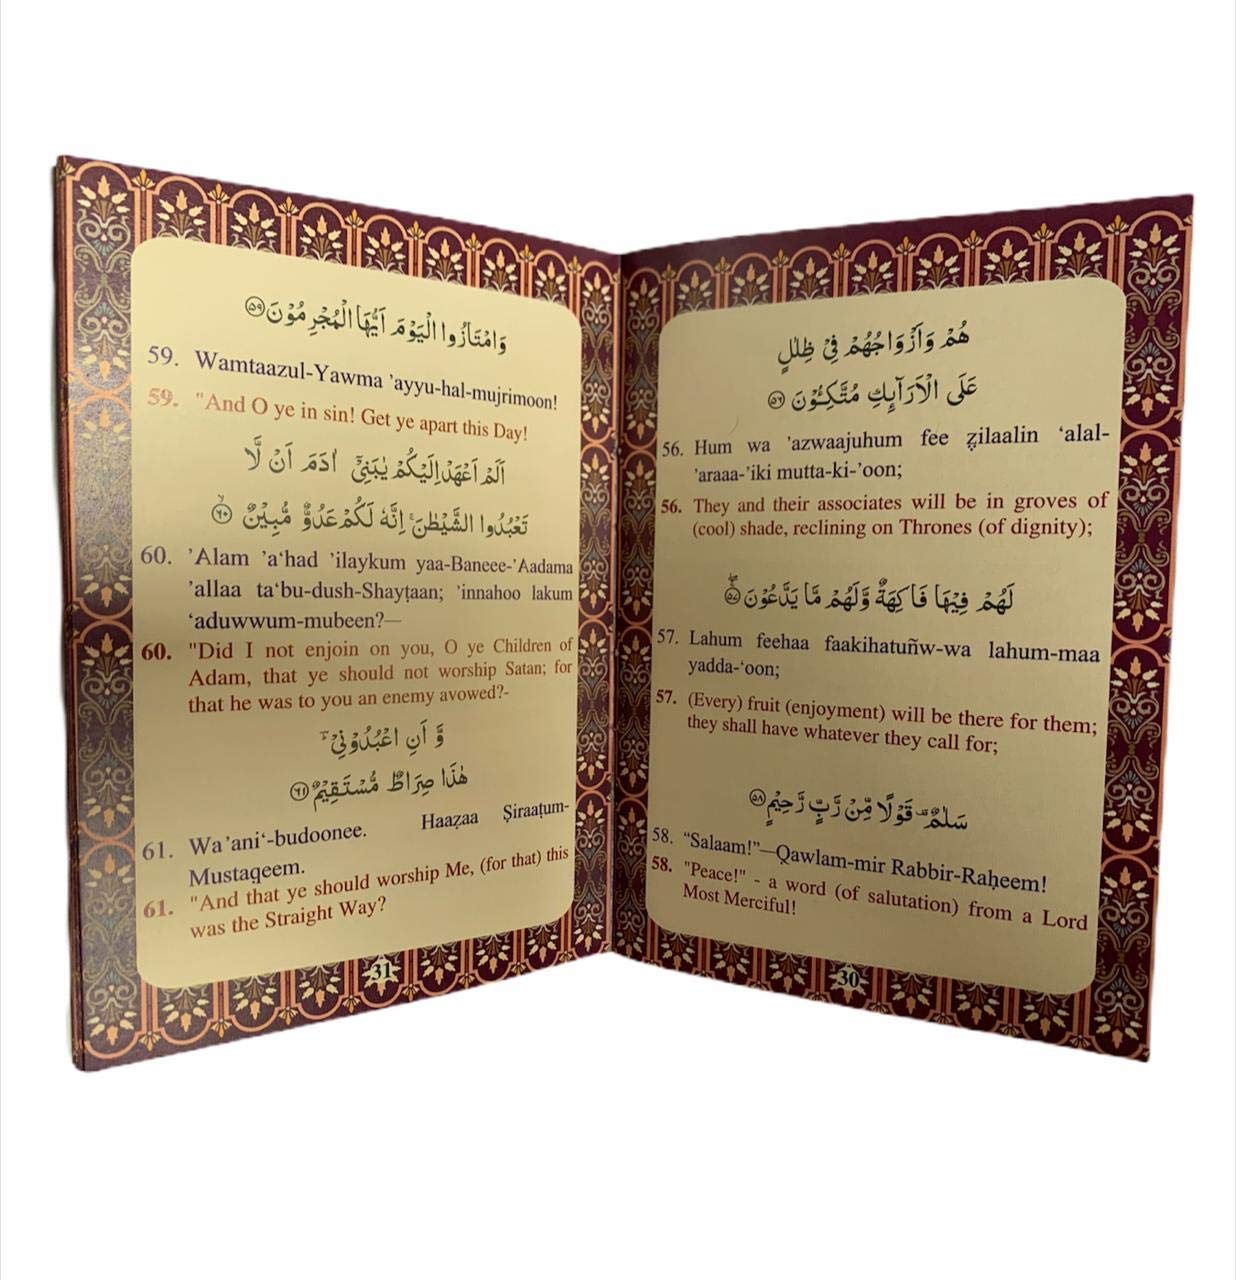 هُمْ وَاَزْوَاجُهُمْ فِیْ ظِلٰلٍ
عَلَی الْاَرَآىِٕكِ مُتَّكِـُٔوْنَ ۝۵۶
56. Hum wa ’azwaajuhum fee ẓilaalin ‘alal-
’araaa-’iki mutta-ki-’oon;
56. They and their associates will be in groves of
(cool) shade, reclining on Thrones (of dignity);
لَهُمْ فِیْهَا فَاكِهَةٌ وَّلَهُمْ مَّا یَدَّعُوْنَ ۝۵۷
57. Lahum feehaa faakihatuñw-wa lahum-maa
yadda-‘oon;
57. (Every) fruit (enjoyment) will be there for them;
they shall have whatever they call for;
سَلٰمٌ ۫ قَوْلًا مِّنْ رَّبٍّ رَّحِیْمٍ ۝۵۸
58. “Salaam!”—Qawlam-mir Rabbir-Raḥeem!
58. "Peace!" - a word (of salutation) from a Lord
Most Merciful!
30
وَامْتَازُوا الْیَوْمَ اَیُّهَا الْمُجْرِمُوْنَ ۝۵۹
59. Wamtaazul-Yawma ’ayyu-hal-mujrimoon!
59. "And O ye in sin! Get ye apart this Day!
اَلَمْ اَعْهَدْ اِلَیْكُمْ یٰبَنِیْۤ اٰدَمَ اَنْ لَّا
تَعْبُدُوا الشَّیْطٰنَ ۚ اِنَّهٗ لَكُمْ عَدُوٌّ مُّبِیْنٌ ۝۶۰
60. ’Alam ’a‘had ’ilaykum yaa-Baneee-’Aadama
’allaa ta‘bu-dush-Shayṭaan; ’innahoo lakum
‘aduwwum-mubeen?—
60. "Did I not enjoin on you, O ye Children of
Adam, that ye should not worship Satan; for
that he was to you an enemy avowed?-
وَّ اَنِ اعْبُدُوْنِیْ ؔ
هٰذَا صِرَاطٌ مُّسْتَقِیْمٌ ۝۶۱
61. Wa’ani‘-budoonee. Haaẓaa Ṣiraaṭum-
Mustaqeem.
61. "And that ye should worship Me, (for that) this
was the Straight Way?
31